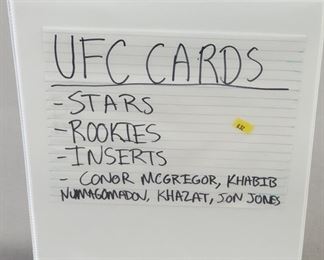 UFC CARDS
-STARS
-ROOKIES
-INSERTS
- CONOR MCGREGOR, KHABIB
NUMAGOMADOV, KHAZAT, JON JONES